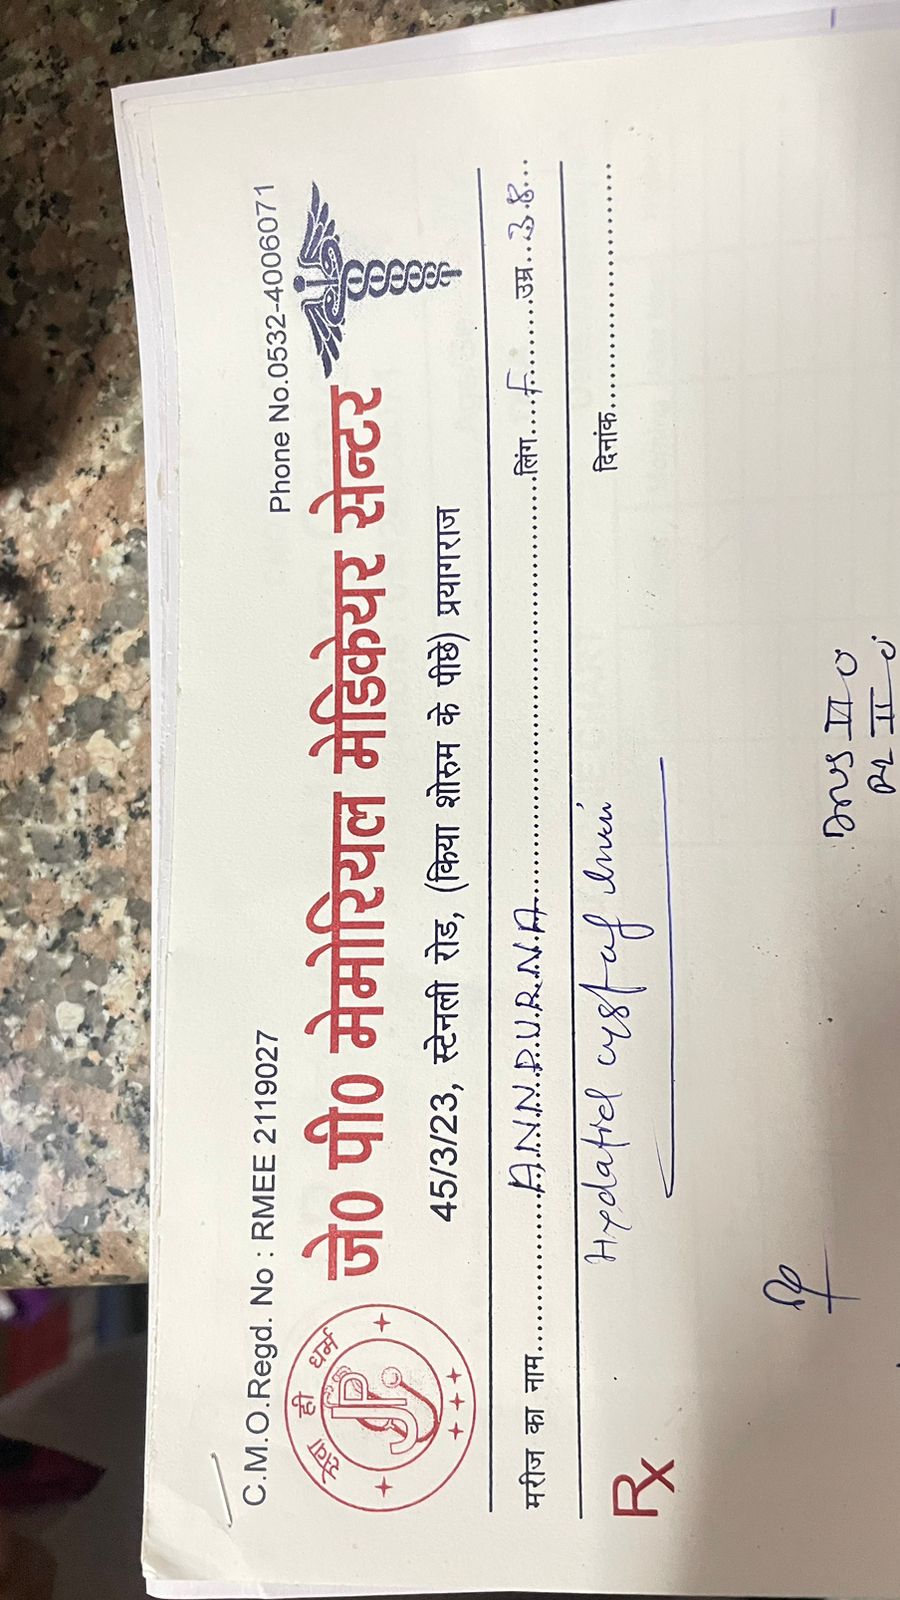 C.M.O.Regd. No : RMEE 2119027 Phone No.0532-4006071
सेवा ही धर्म
JP
जे० पी० मेमोरियल मेडिकेयर सेन्टर
45/3/23, स्टेनली रोड, (किया शोरुम के पीछे) प्रयागराज
मरीज का नाम ANNPURNA लिंग F उम्र 38
Rx Hydatid cyst of liver
दिनांक
DNS VI
RL II